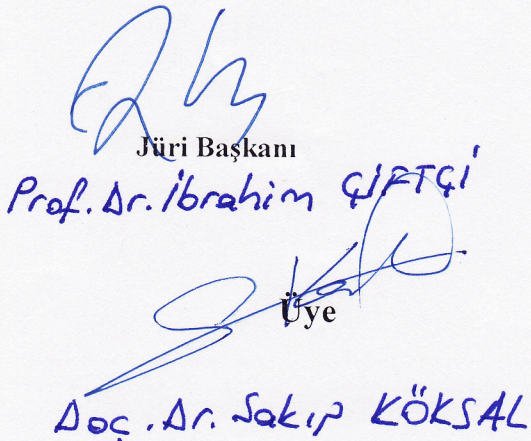 Jüri Başkanı
Prof. Dr. İbrahim ÇİFTÇİ
Üye
Doç. Dr. Sakıp KÖKSAL